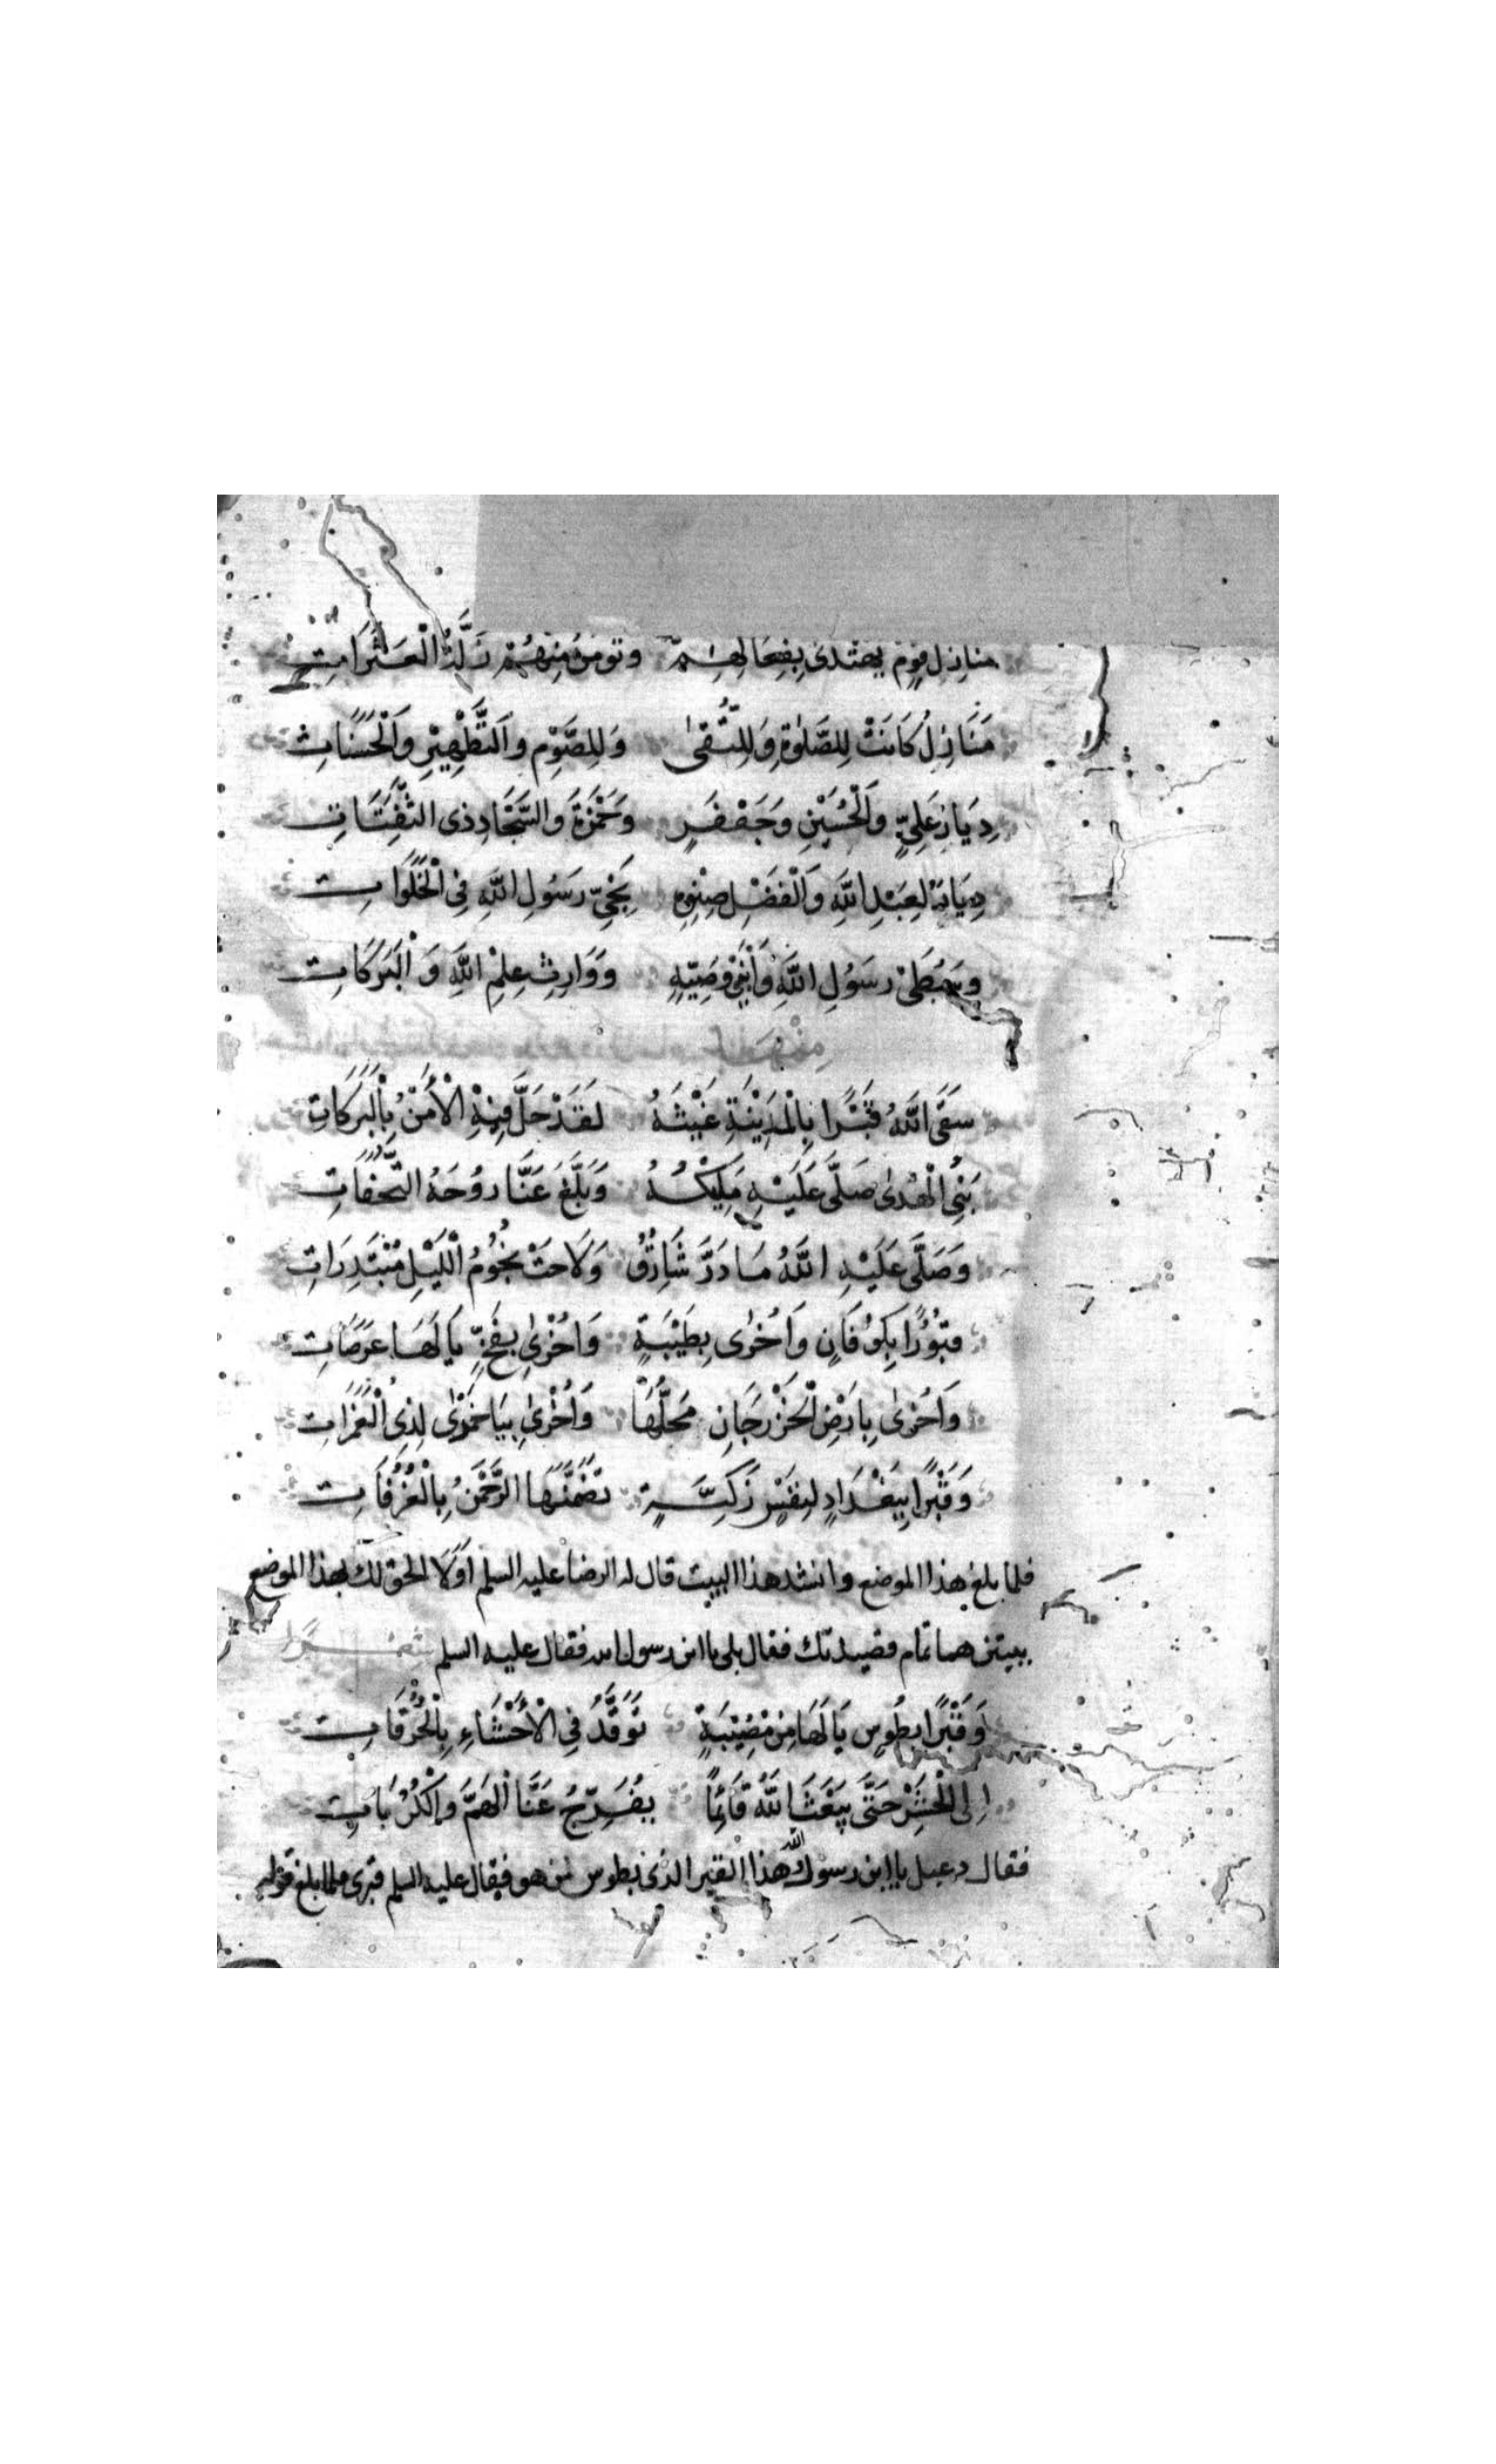 منازل قوم يهتدى بفعالهم وتومن منهم زلة العثرات
مَنَازِلُ كَانَتْ لِلصَّلٰوةِ وَلِلتُّقىٰ وَلِلصَّوْمِ وَالتَّطْهِيْرِ وَالْحَسَنَاتِ
دِيَارُ عَلِيٍّ وَالْحُسَيْنِ وَجَعْفَرٍ وَحَمْزَةَ وَالسَّجَّادِ ذى الثَّفِنَاتِ
دِيَارٌ لِعَبْدِ اللَّهِ وَالْفَضْلِ صِنْوِهِ نَجِيِّ رَسُولِ اللَّهِ فِى الْخَلَوَاتِ
وَسِبْطَىْ رَسُولِ اللَّهِ وَابْنَىْ وَصِيِّهِ وَوَارِثِ عِلْمِ اللَّهِ وَالْبَرَكَاتِ
مِنْهَا
سَقَى اللَّهُ قَبْرًا بِالْمَدِيْنَةِ غَيْثَهُ لَقَدْ حَلَّ فِيْهِ الْاَمْنُ بِالْبَرَكَاتِ
نَبِىُّ الْهُدىٰ صَلَّى عَلَيْهِ مَلِيْكُهُ وَبَلَّغَ عَنَّا رُوحَهُ التُّحَفَاتِ
وَصَلَّى عَلَيْهِ اللَّهُ مَا ذَرَّ شَارِقٌ وَلَاحَتْ نُجُوْمُ الْلَيْلِ مُبْتَدِرَاتِ
قبُوْرًا بِكُوْفَانٍ وَاُخْرٰى بِطَيْبَةٍ وَاُخْرىٰ بِفَخٍّ يَا لَهَا عَرَصَاتِ
وَاُخْرىٰ بِاَرْضِ الْجَوْزَجَانِ مَحَلُّهَا وَاُخْرىٰ بِبَاخَمْرٰى لِذِى الْغَمَرَاتِ
وَقَبْرًا بِبَغْدَادٍ لِنَفْسٍ زَكِيَّةٍ تَضَمَّنَهَا الرَّحْمٰنُ بِالْغُرُفَاتِ
فلما بلغ هذا الموضع وانشد هذا البيت قال له الرضا عليه السلم اَوَلَا الحق لك بهذا الموضع
ببيتين هما تمام قصيدتك فقال بلى يا ابن رسول الله فقال عليه السلم شعر
وَقَبْرًا بِطُوسٍ يَا لَهَا مِنْ مُصِيْبَةٍ تَوَقَّدُ فِى الْاَحْشَاءِ بِالْحُرُقَاتِ
اِلى الْحَشْرِ حَتَّى يَبْعَثَ اللَّهُ قَائِمًا يُفَرِّجُ عَنَّا الْهَمَّ وَالْكُرُبَاتِ
فقال دعبل يا ابن رسول الله هذا القبر الذى بطوس لمن هو فقال عليه السلم قبرى فلما بلغ قوله